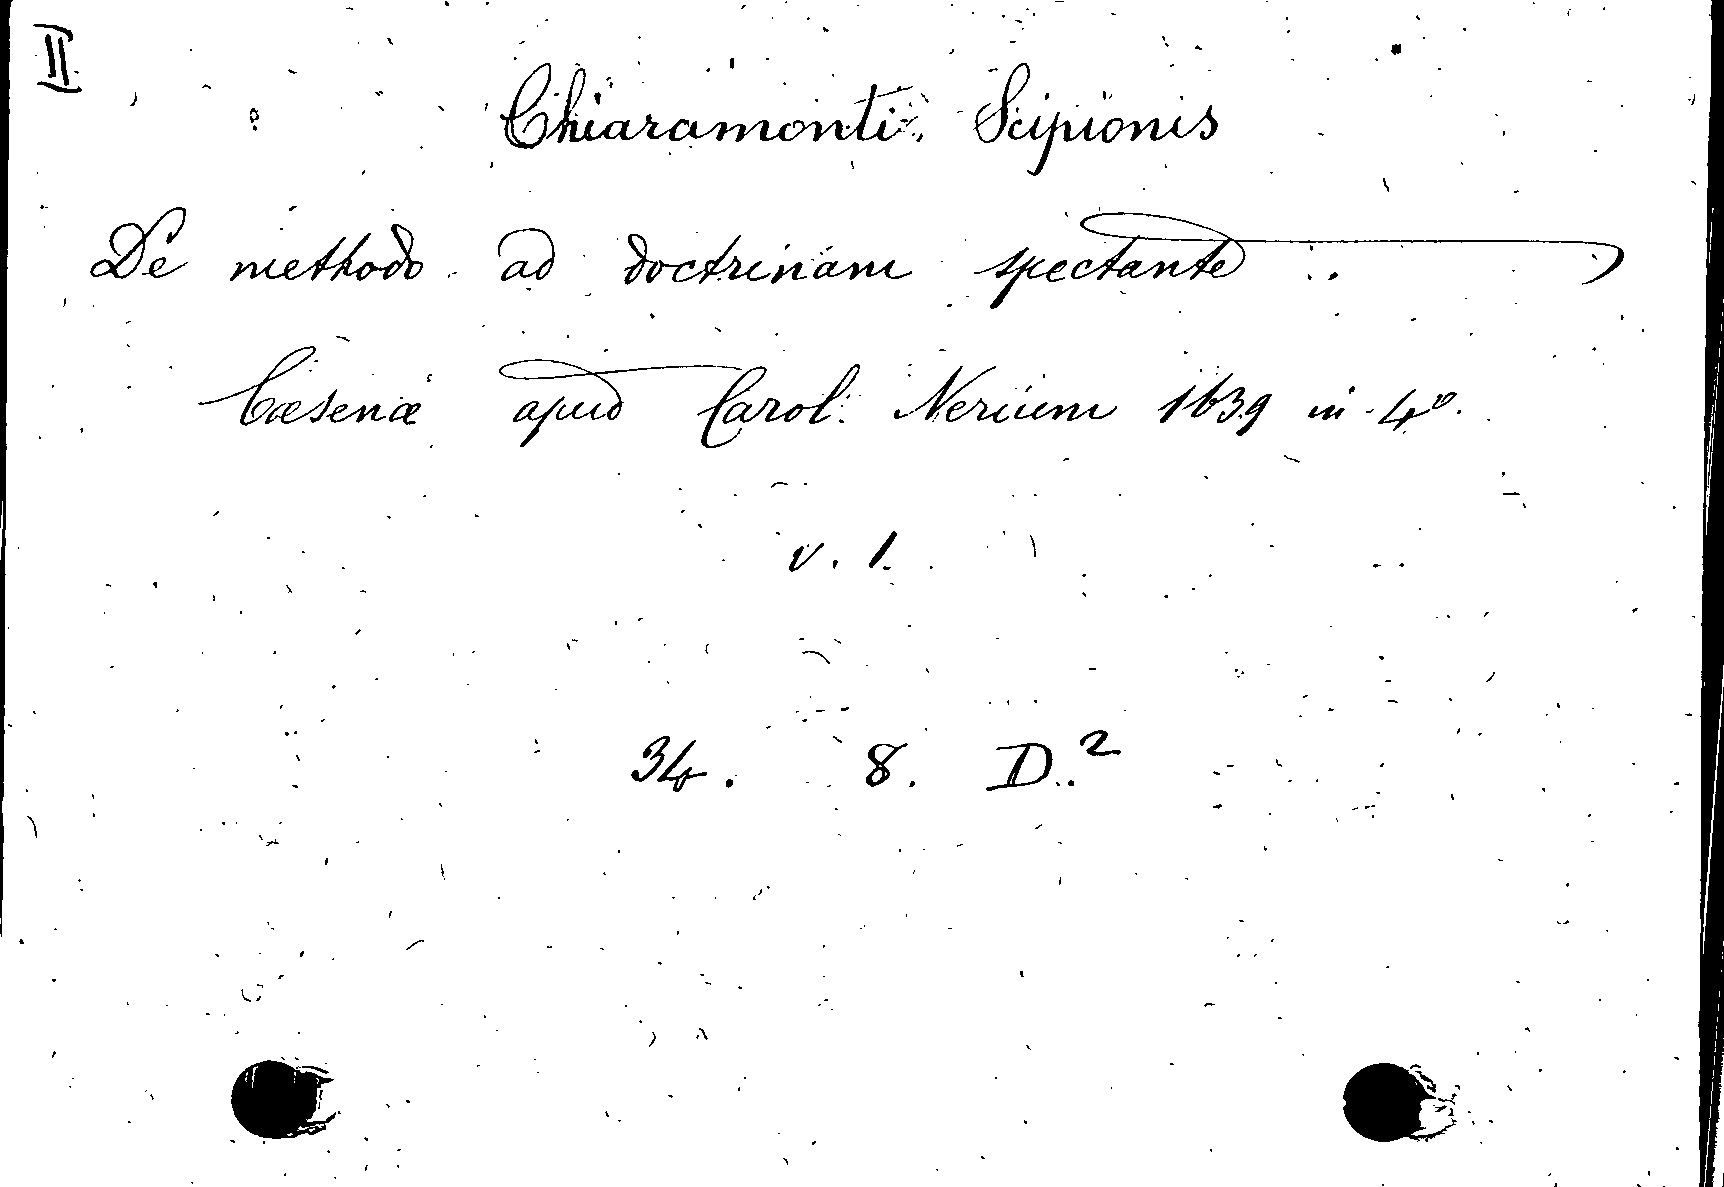 II
Chiaramonti Scipionis
De methodo ad doctrinam spectante ..
Cæsenæ apud Carol. Nerium 1639 in 4º.
v. 1.
34. 8. D.²